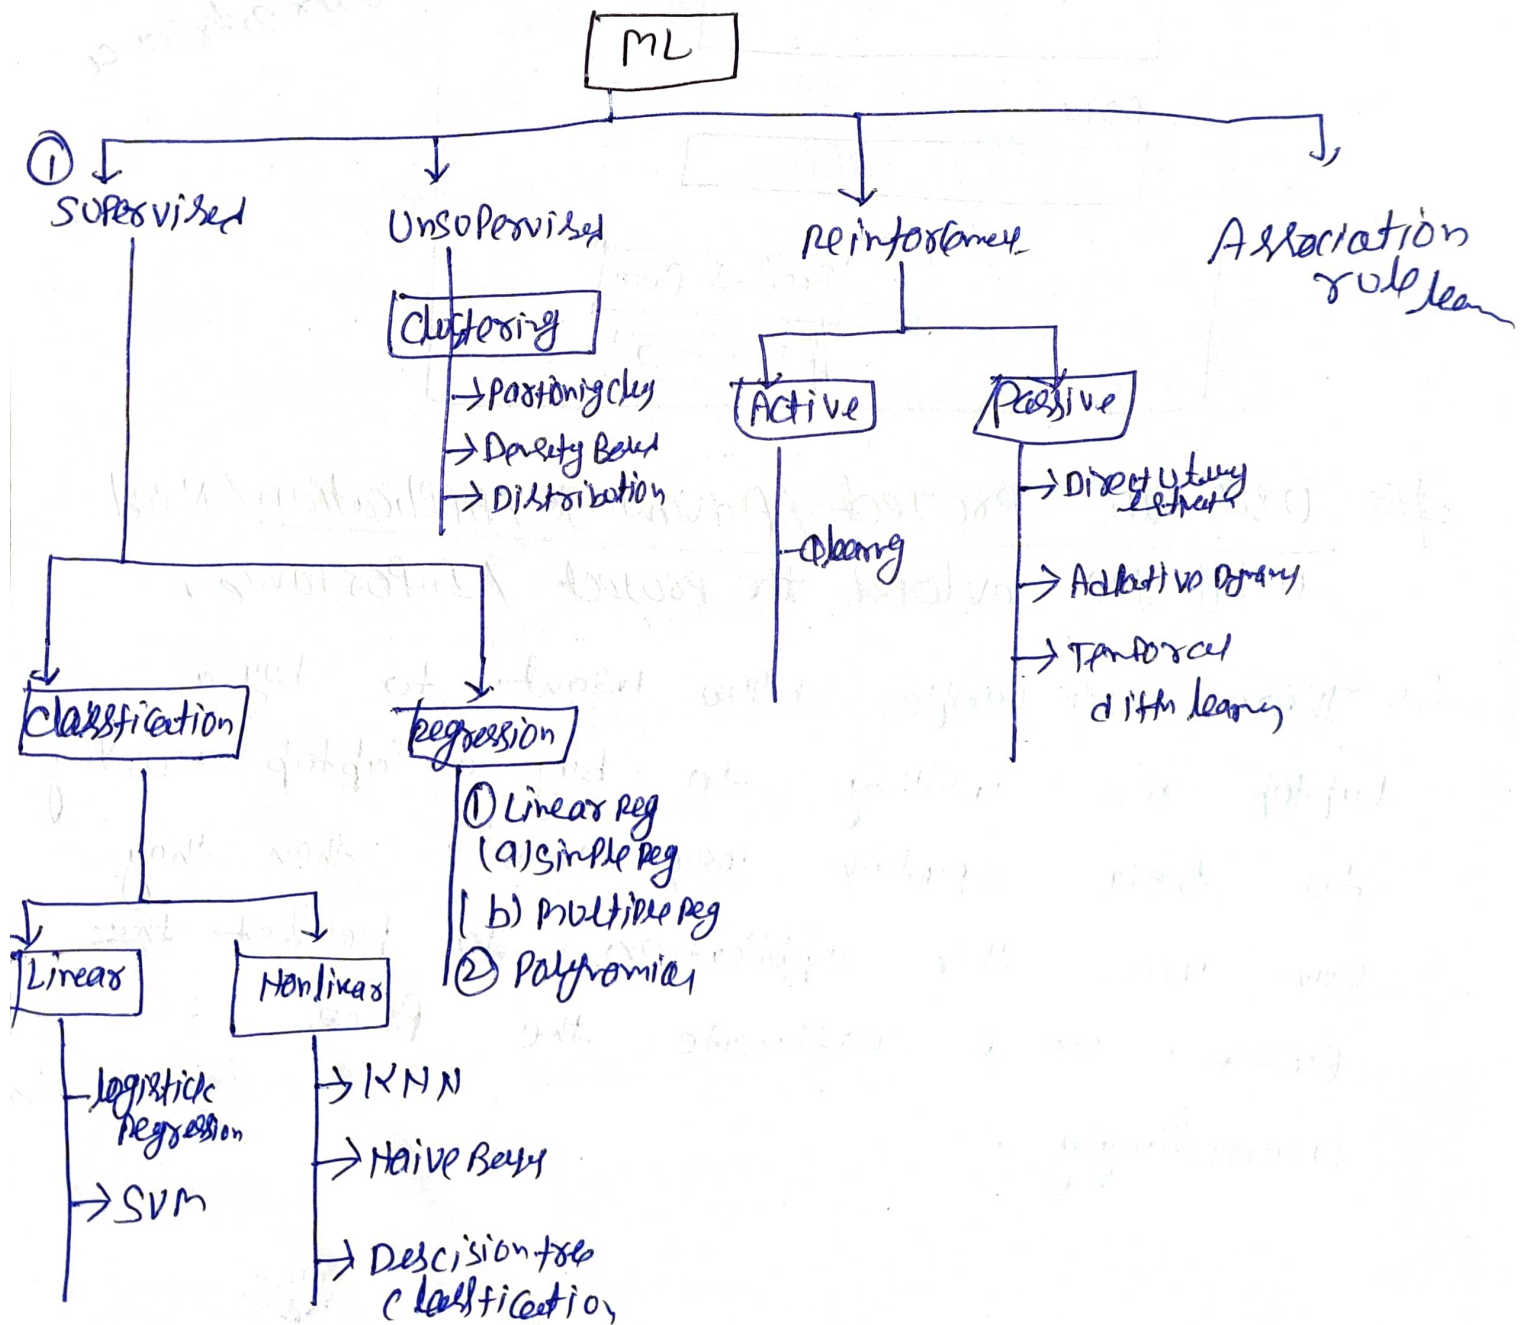 ML
①
Supervised
Unsupervised
Reinforcemet
Association
rule lear
Clustering
→ Partioning clus
→ Density Based
→ Distribution
Active
Qlearng
Passive
→ Direct Utility
→ Adaptive
→ Temporal
diffn learng
Classfication
Regression
① Linear Reg
(a) Simple Reg
(b) Multiple Reg
② Polynomial
Linear
Nonlinear
logistick
Regression
→ SVM
→ KNN
→ Naive Bays
→ Descision tree
Classfication